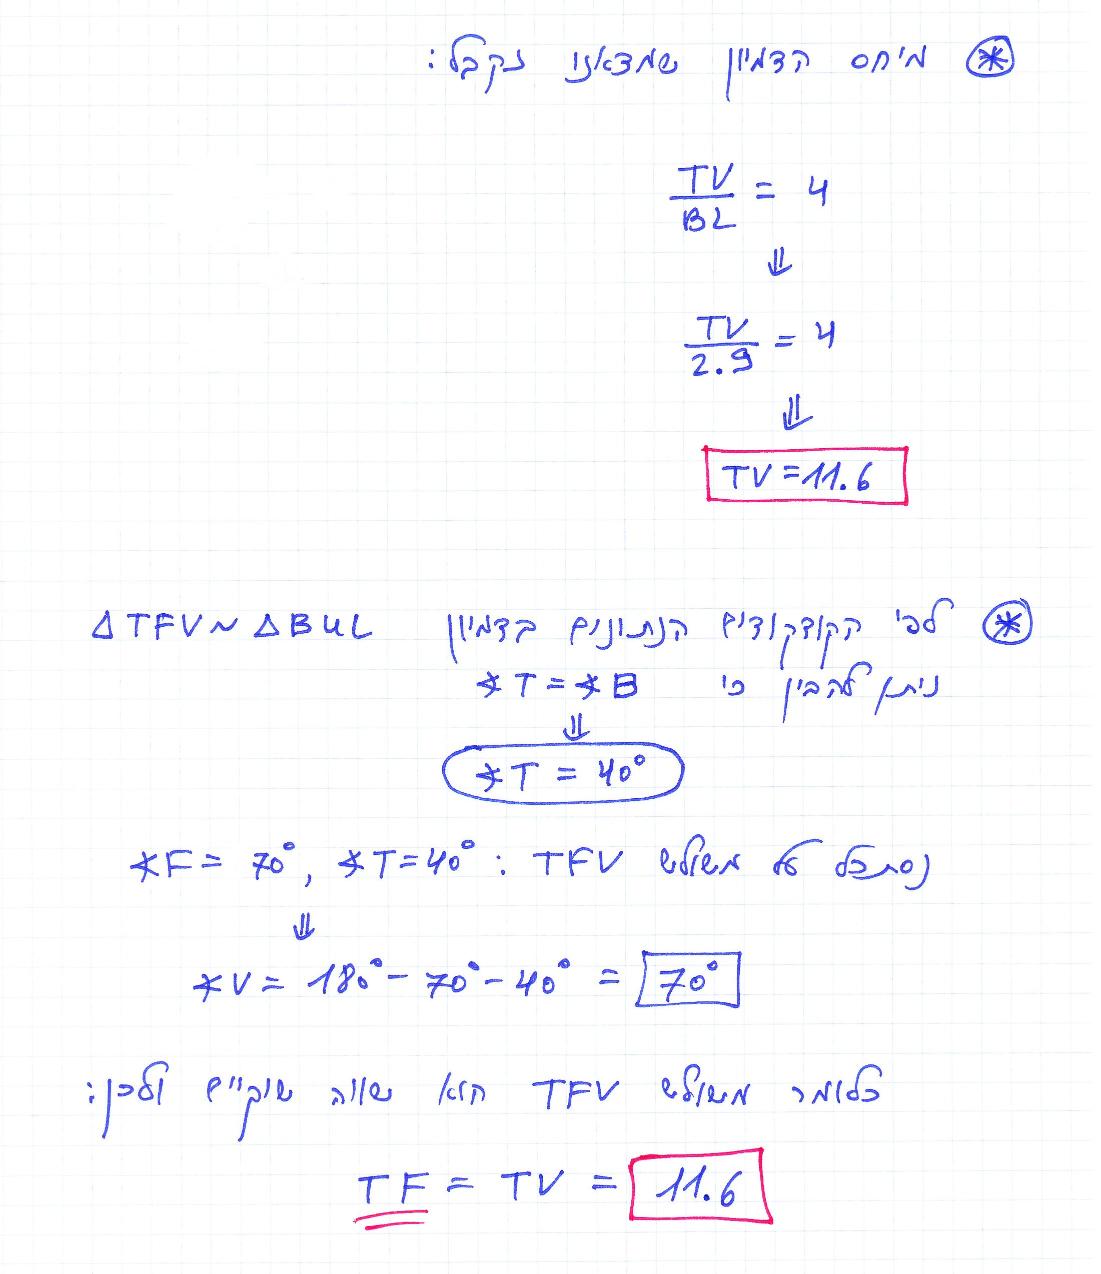 * מיחס הדמיון שמצאנו נקבל:
TV/BL = 4
⇓
TV/2.9 = 4
⇓
TV = 11.6
* לפי הקודקודים הנתונים בדמיון ΔTFV ~ ΔBUL
ניתן להבין כי ∢T = ∢B
⇓
∢T = 40°
נסתכל על משולש TFV : ∢T = 40° , ∢F = 70°
⇓
∢V = 180° - 70° - 40° = 70°
כלומר משולש TFV הוא שווה שוקיים ולכן:
TF = TV = 11.6